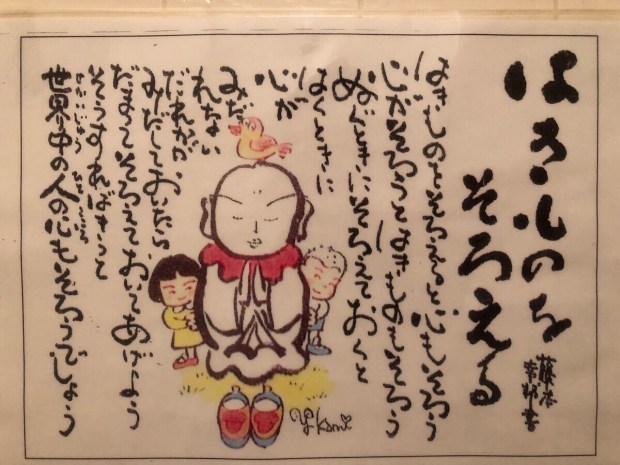 はきものを
そろえる
藤本
幸邦書
はきものをそろえると心もそろう
心がそろうとはきものもそろう
ぬぐときにそろえておくと
はくときに
心が
みだ
れない
だれかが
みだしておいたら
だまってそろえておいてあげよう
そうすればきっと
せかいじゅう ひと こころ
世界中の人の心もそろうでしょう